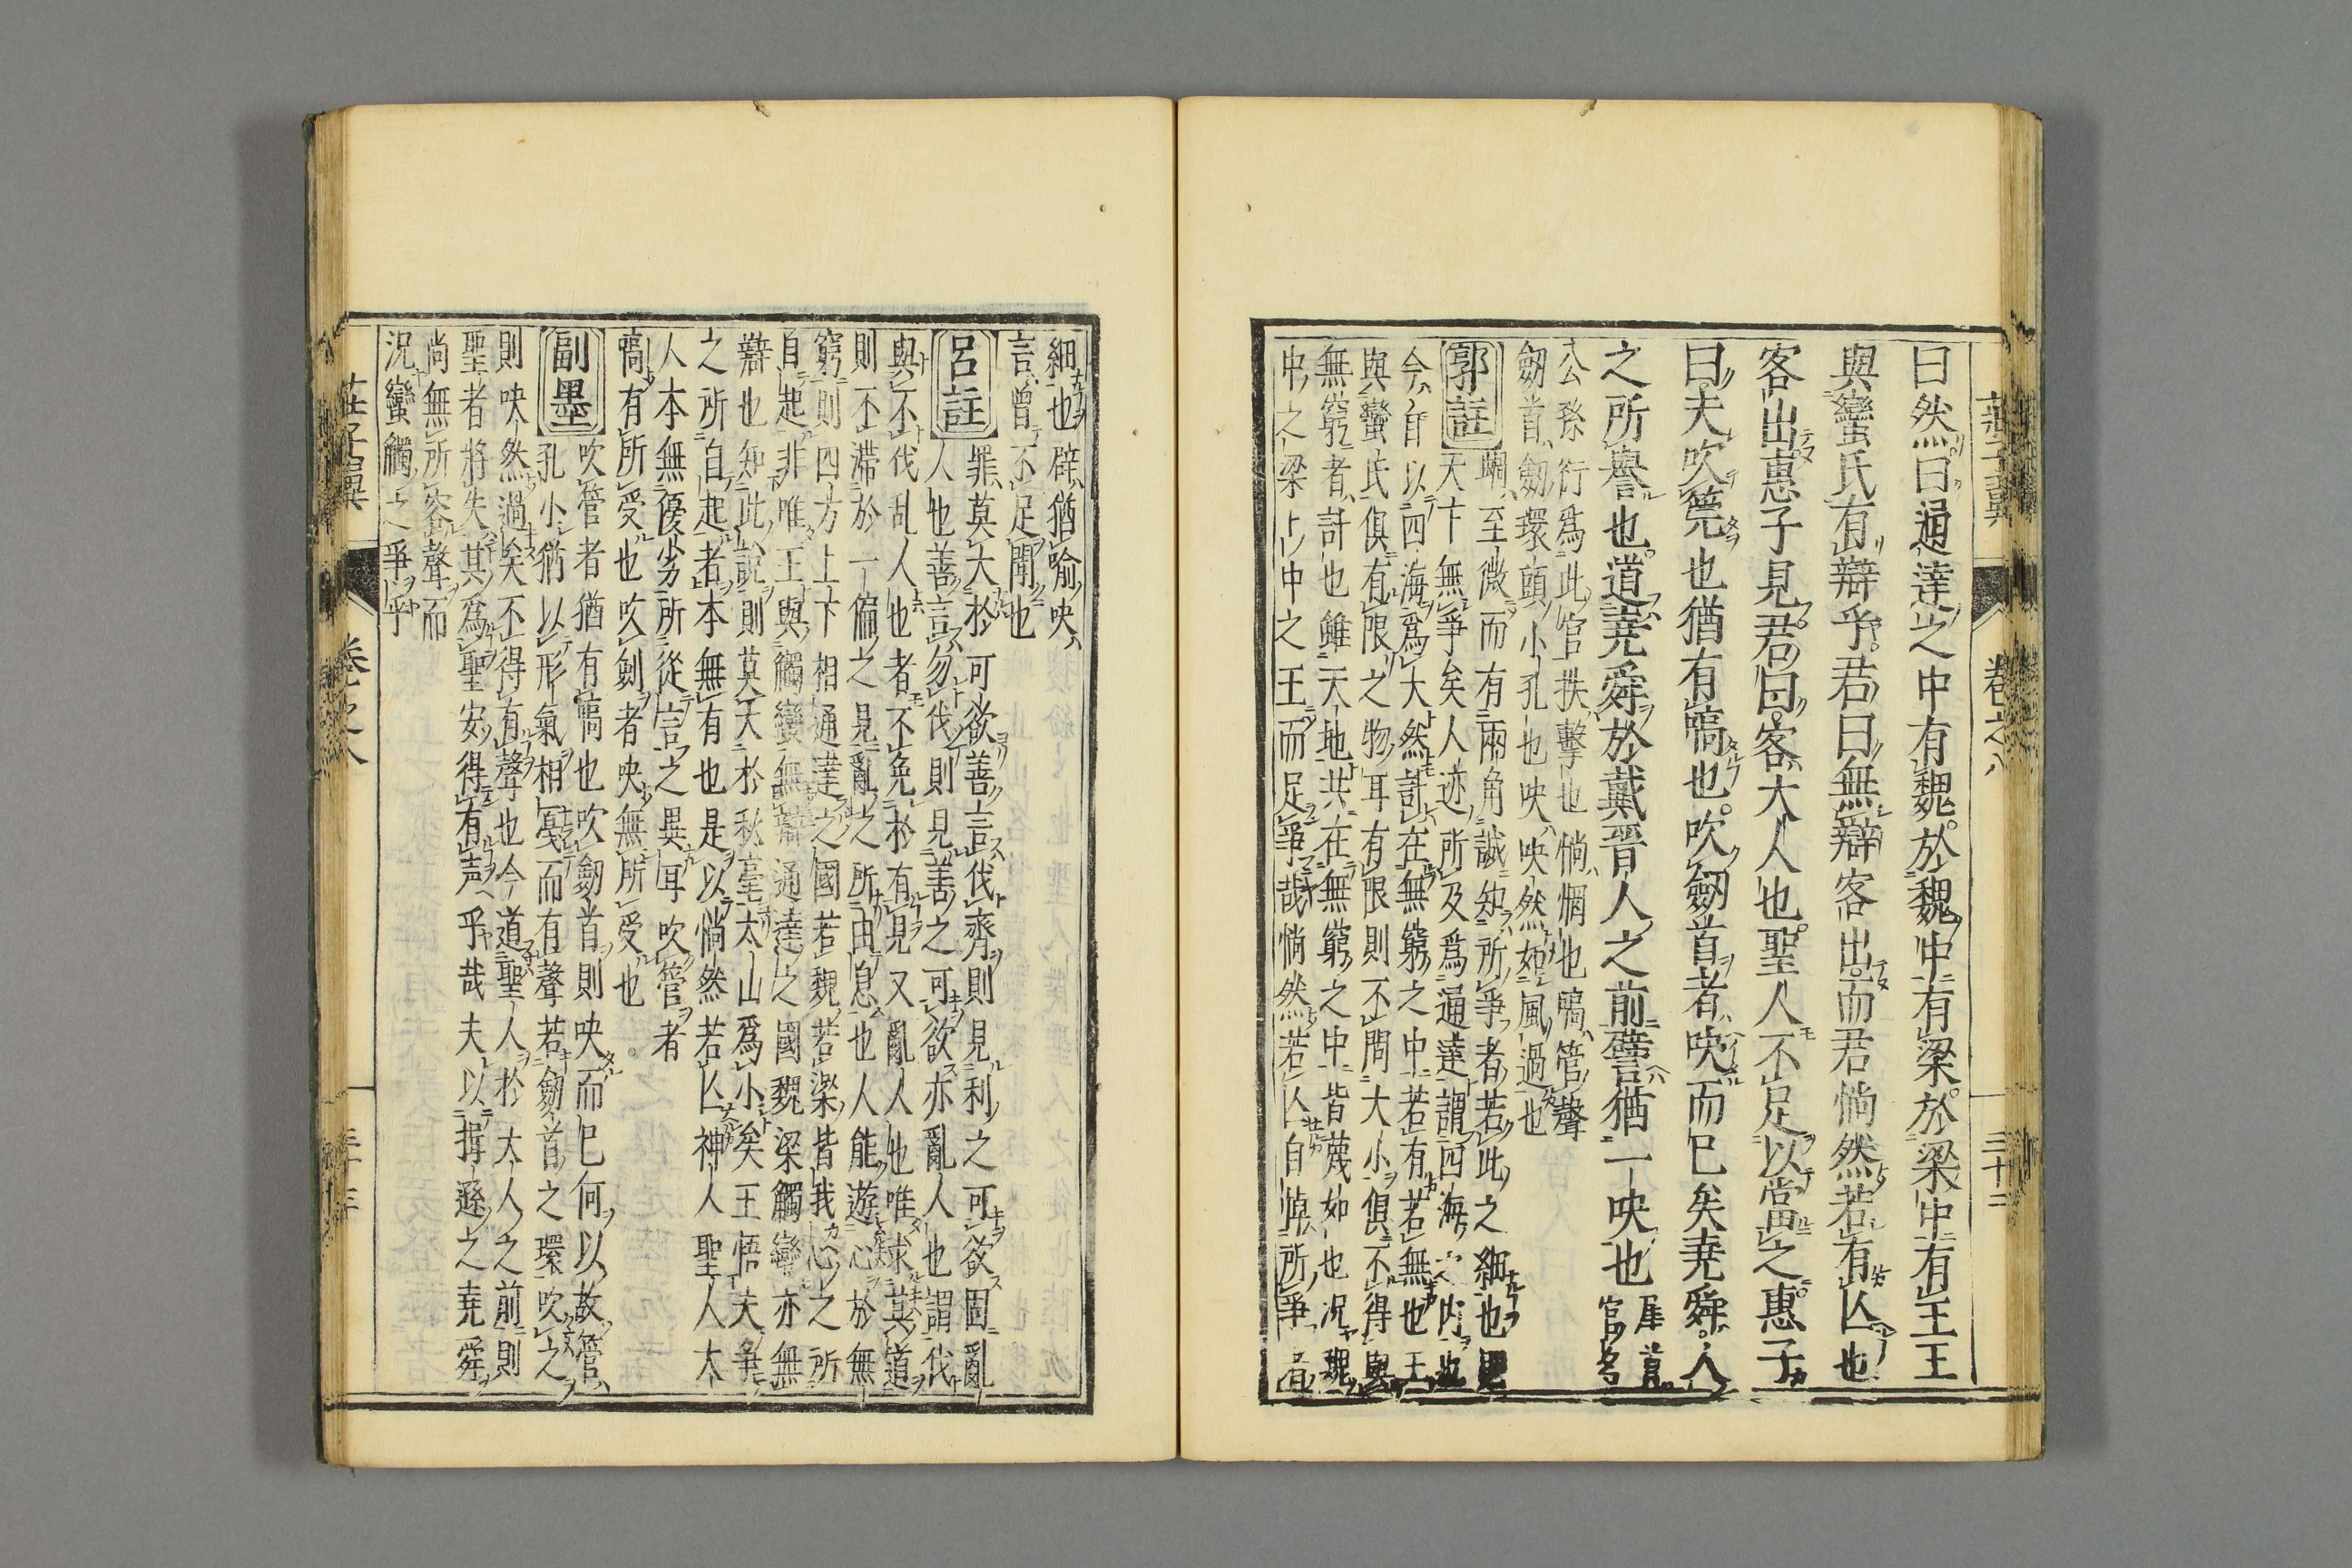 莊子翼 卷之八 三十二
曰然曰通達之中有魏於魏中有梁於梁中有王王
與蠻氏有辯乎君曰無辯客出而君惝然若有亾也
客出惠子見君曰客大人也聖人不足以當之惠子
曰夫吹筦也猶有嗃也吹劒首者吷而已矣堯舜人
之所譽也道堯舜於戴晋人之前譬猶一吷也 犀首官名
公孫衍爲此官抶擊也惝惘也嗃管聲
劒首劒環頭小孔也吷吷然如風過也
郭註 蝸至微而有兩角誠知所爭者若此之細也則
天下無爭矣人迹所及爲通達謂四海之内也
今自以四海爲大然計在無窮之中若有若無也王
與蠻氏俱有限之物耳有限則不問大小俱不得與
無窮者計也雖天地共在無窮之中皆蔑如也况魏
中之梁梁中之王而足爭哉惝然若亾自悼所爭者
細也辟猶喻吷
言曾不足聞也
呂註 罪莫大於可欲善言伐齊則見利之可欲固亂
人也善言勿伐則見善之可欲亦亂人也謂伐
與不伐乱人也者不免於有見又亂人也唯求其道
則不滯於一偏之見亂之所由息也人能遊心於無
窮則四方上下相通達之國若魏若梁皆我心之所
自起非唯王與觸蠻無辯通達之國魏梁觸蠻亦無
辯也知此說則莫大於秋毫太山爲小矣王悟夫爭
之所自起者本無有也是以惝然若亾神人聖人大
人本無優劣所從言之異耳吹管者
嗃有所受也吹劍者吷無所受也
副墨 吹管者猶有嗃也吹劒首則吷而已何以故管
孔小猶以形氣相戞而有聲若劒首之環吹之
則吷然過矣不得有聲也今道聖人於大人之前則
聖者將失其爲聖安得有声乎哉夫以揖遜之堯舜
尚無所容聲而
況蠻觸之爭乎
莊子翼 卷之八 三十二